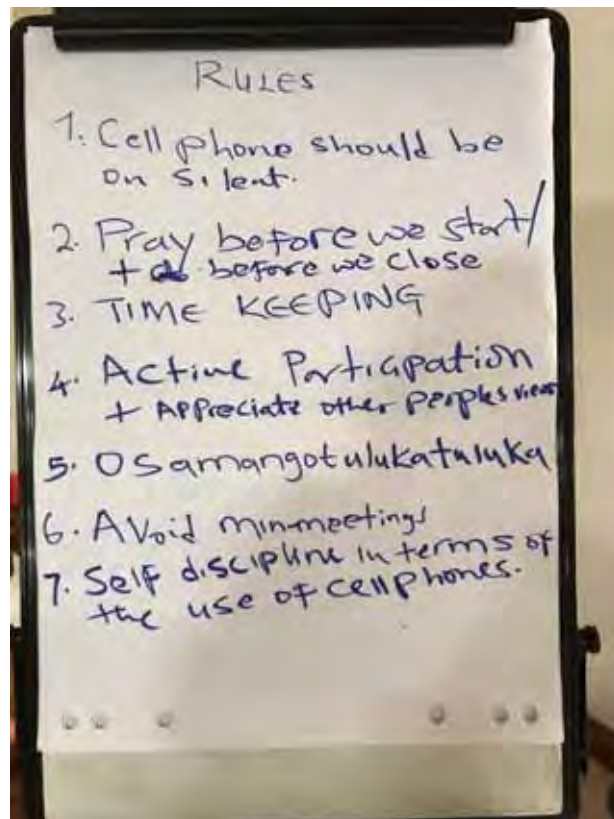 RULES
1. Cell phone should be
on silent.
2. Pray before we start/
+ before we close
3. TIME KEEPING
4. Active Particapation
+ Appreciate other peoples views
5. Osamangotulukatuluka
6. Avoid min-meetings
7. Self discipline in terms of
the use of cellphones.